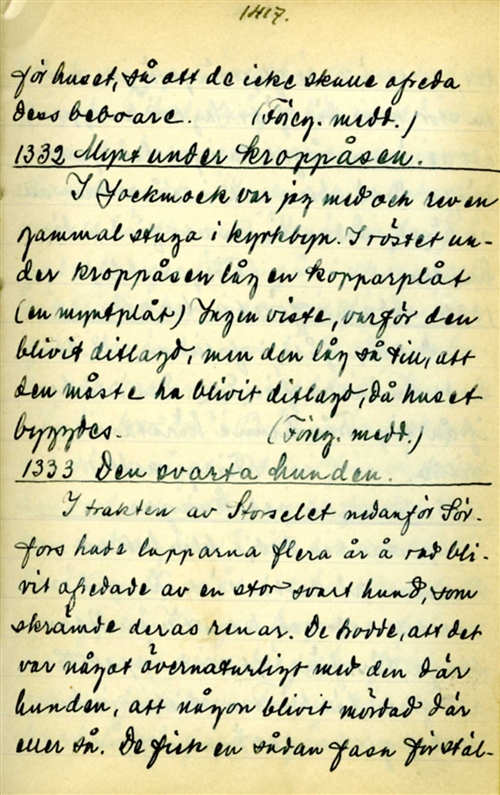 1417.
för huset, så att de icke skulle ofreda
dess beboare. (Föreg. medd.)
1332 Mynt under kroppåsen.
I Jockmock var jag med och rev en
gammal stuga i kyrkbyn. I röstet un-
der kroppåsen låg en kopparplåt
(en myntplåt) Ingen visste, varför den
blivit ditlagd, men den låg så till, att
den måste ha blivit ditlagd, då huset
byggdes. (Föreg. medd.)
1333 Den svarta hunden.
I trakten av Storselet nedanför Sör-
fors hade lapparna flera år å rad bli-
vit ofredade av en stor svart hund, som
skrämde deras renar. De trodde, att det
var något övernaturligt med den där
hunden, att någon blivit mördad där
eller så. De fick en sådan fasa för stäl-